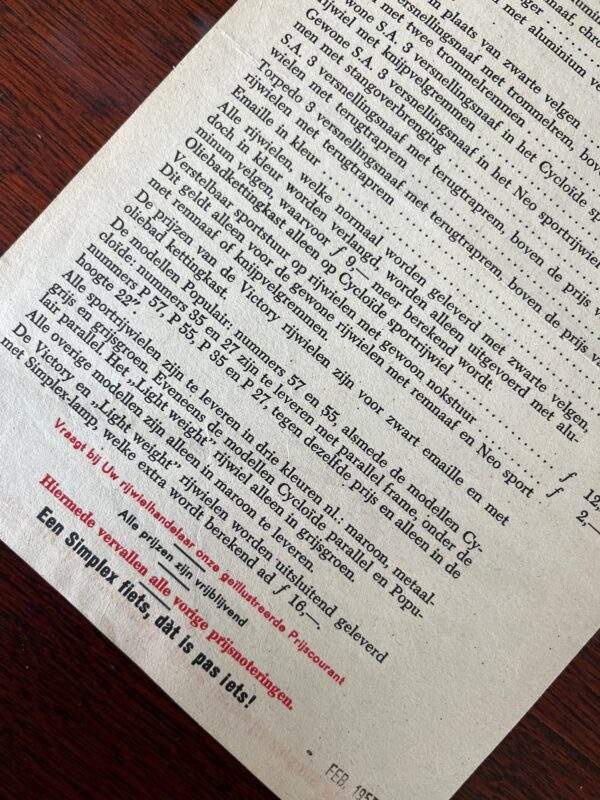 in plaats van zwarte velgen
versnellingsnaaf met trommelremmen
met twee trommelremmen
Gewone S.A. 3 versnellingsnaaf in het Cycloïde
rijwiel met knijpvelgremmen
S.A. 3 versnellingsnaaf in het Neo sportrijwiel
men met stangoverbrenging
Torpedo 3 versnellingsnaaf met terugtraprem, boven de prijs
wielen met terugtraprem
rijwielen met terugtraprem
Emaille in kleur
Alle rijwielen, welke normaal worden geleverd met zwarte velgen,
doch in kleur worden verlangd, worden alleen uitgevoerd met alu-
minium velgen, waarvoor f 9,— meer berekend wordt.
Oliebadkettingkast alleen op Cycloïde sportrijwiel
Verstelbaar sportstuur op rijwielen met gewoon nokstuur
Dit geldt alleen voor de gewone rijwielen met remnaaf en Neo sport
met remnaaf of knijpvelgremmen.
De prijzen van de Victory rijwielen zijn voor zwart emaille en met
oliebad kettingkast
De modellen Populair: nummers 57 en 55, alsmede de modellen Cy-
cloïde: nummers 35 en 27 zijn te leveren met parallel frame, onder de
nummers P 57, P 55, P 35 en P 27, tegen dezelfde prijs en alleen in de
hoogte 22".
Alle sportrijwielen zijn te leveren in drie kleuren nl.: maroon, metaal-
grijs en grijsgroen. Eveneens de modellen Cycloïde parallel en Popu-
lair parallel. Het „Light weight" rijwiel alleen in grijsgroen.
Alle overige modellen zijn alleen in maroon te leveren.
De Victory en „Light weight" rijwielen worden uitsluitend geleverd
met Simplex-lamp, welke extra wordt berekend ad f 16,—.
Vraagt bij Uw rijwielhandelaar onze geïllustreerde Prijscourant
Alle prijzen zijn vrijblijvend
Hiermede vervallen alle vorige prijsnoteringen.
Een Simplex fiets, dàt is pas iets!
FEB. 1957